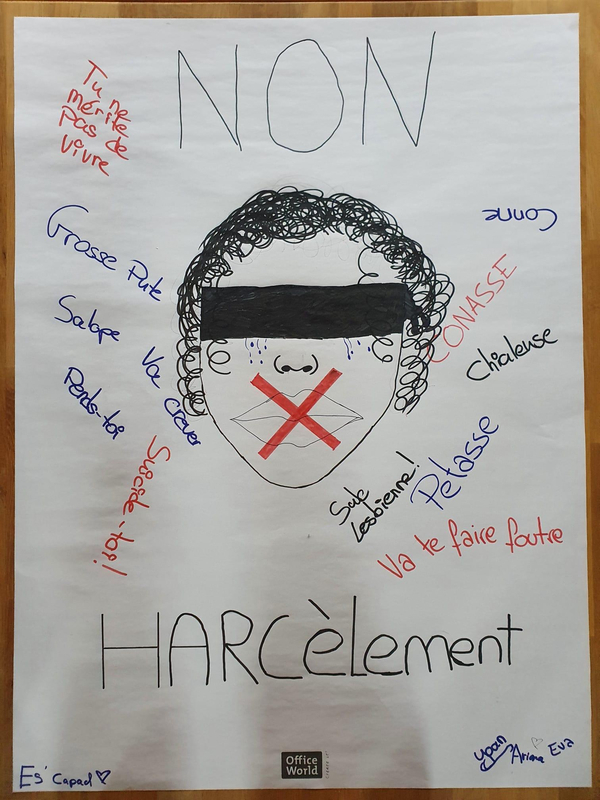 NON
Tu ne
mérite
Pas de
vivre
conne
Grosse Pute
CONASSE
Salope
Va crever
Chialeuse
Rends-toi
Suicide-toi!
Sale
Lesbienne!
Petasse
Va te faire foutre
HARCèLement
Office
World
Es' Capad
Arina Eva